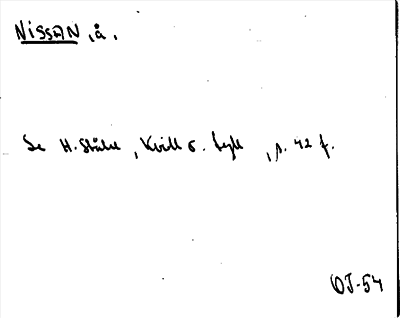 NISSAN, å.
Se H. Ståhl, Kvill o. Tyll, s. 42 f.
OJ-54